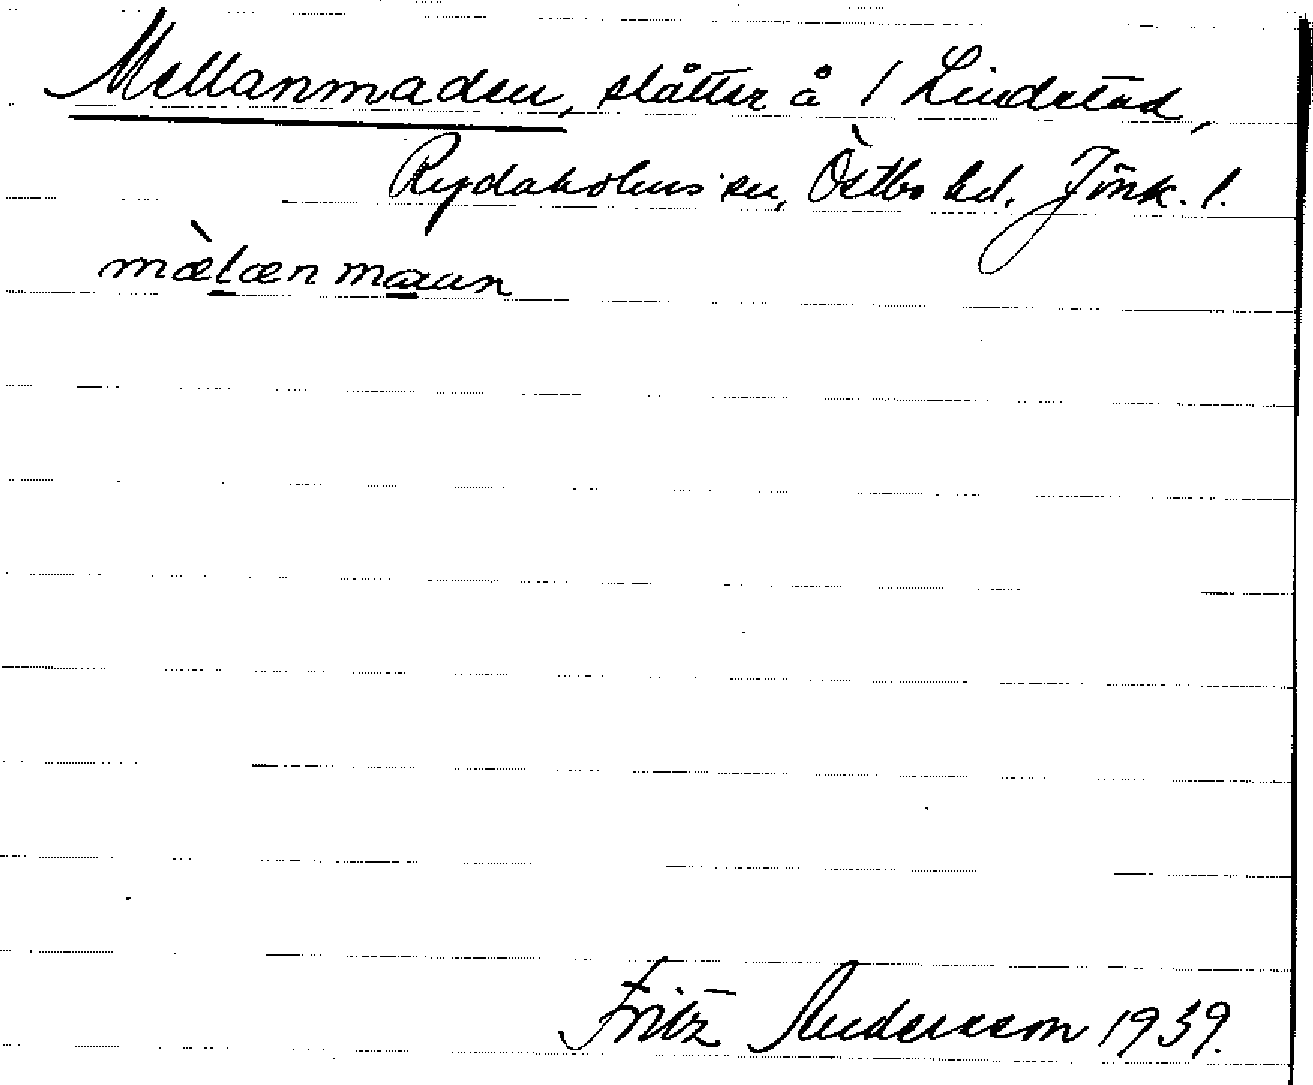 Mellanmaden, slåtter å / Lindstad,
Rydaholms sn, Östbo hd. Jönk. l.
mæ̀læn maun
Fritz Andersson 1939.